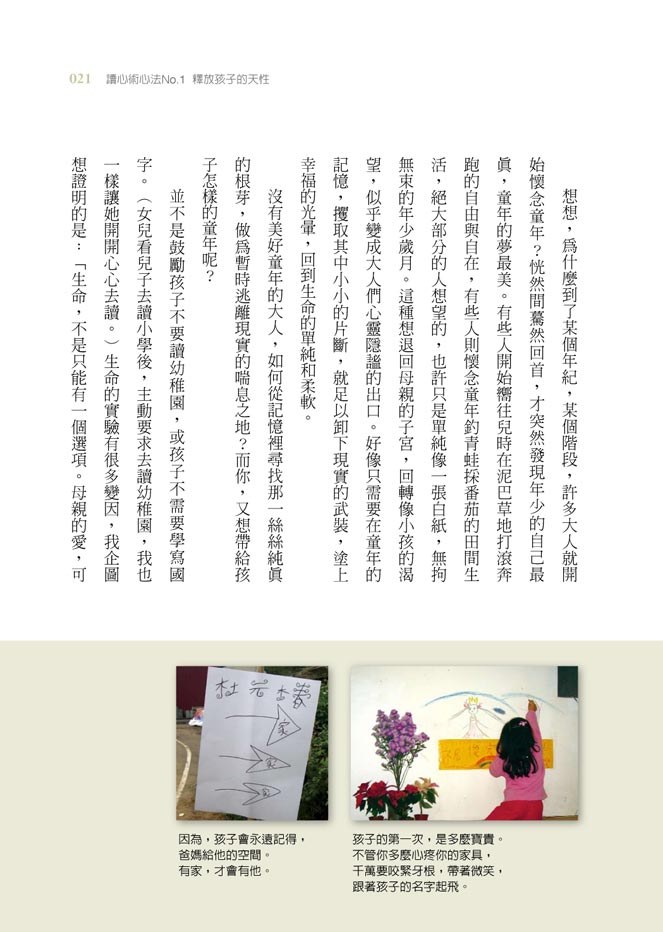 021 讀心術心法No.1 釋放孩子的天性
想想，爲什麼到了某個年紀，某個階段，許多大人就開
始懷念童年？恍然間驀然回首，才突然發現年少的自己最
眞，童年的夢最美。有些人開始嚮往兒時在泥巴草地打滾奔
跑的自由與自在，有些人則懷念童年釣青蛙採番茄的田間生
活，絕大部分的人想望的，也許只是單純像一張白紙，無拘
無束的年少歲月。這種想退回母親的子宮，回轉像小孩的渴
望，似乎變成大人們心靈隱謐的出口。好像只需要在童年的
記憶，攫取其中小小的片斷，就足以卸下現實的武裝，塗上
幸福的光暈，回到生命的單純和柔軟。
沒有美好童年的大人，如何從記憶裡尋找那一絲絲純眞
的根芽，做爲暫時逃離現實的喘息之地？而你，又想帶給孩
子怎樣的童年呢？
並不是鼓勵孩子不要讀幼稚園，或孩子不需要學寫國
字。（女兒看兒子去讀小學後，主動要求去讀幼稚園，我也
一樣讓她開開心心去讀。）生命的實驗有很多變因，我企圖
想證明的是：「生命，不是只能有一個選項。母親的愛，可
家
家
因為，孩子會永遠記得，
爸媽給他的空間。
有家，才會有他。
孩子的第一次，是多麼寶貴。
不管你多麼心疼你的家具，
千萬要咬緊牙根，帶著微笑，
跟著孩子的名字起飛。